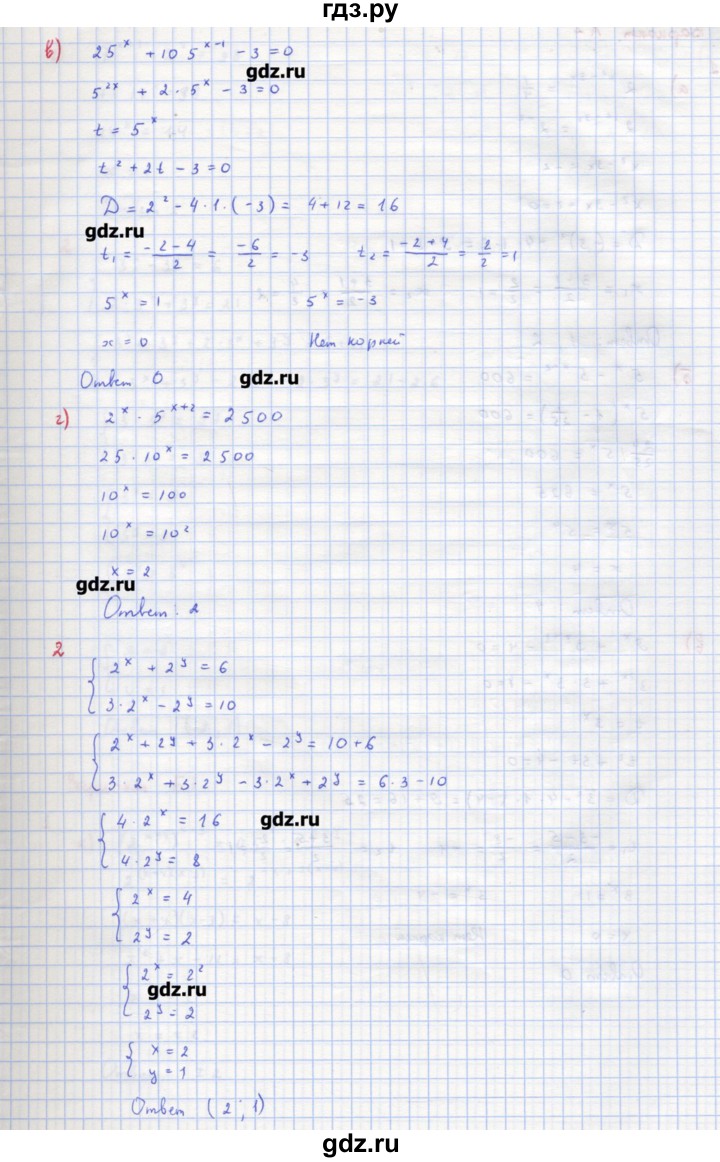 гдз.ру
в) 25^x + 10 5^(x-1) - 3 = 0
gdz.ru
5^(2x) + 2 · 5^x - 3 = 0
t = 5^x
t² + 2t - 3 = 0
D = 2² - 4 · 1 · (-3) = 4 + 12 = 16
gdz.ru
t₁ = (-2-4)/2 = -6/2 = -3 t₂ = (-2+4)/2 = 2/2 = 1
5^x = 1 5^x = -3
x = 0 Нет корней
Ответ 0 gdz.ru
г) 2^x · 5^(x+2) = 2500
25 · 10^x = 2500
10^x = 100
10^x = 10²
x = 2
gdz.ru
Ответ: 2
2
{ 2^x + 2^y = 6
3 · 2^x - 2^y = 10
{ 2^x + 2^y + 3 · 2^x - 2^y = 10 + 6
3 · 2^x + 3 · 2^y - 3 · 2^x + 2^y = 6 · 3 - 10
{ 4 · 2^x = 16 gdz.ru
4 · 2^y = 8
{ 2^x = 4
2^y = 2
{ 2^x = 2²
gdz.ru
2^y = 2
{ x = 2
y = 1
Ответ (2; 1)
gdz.ru